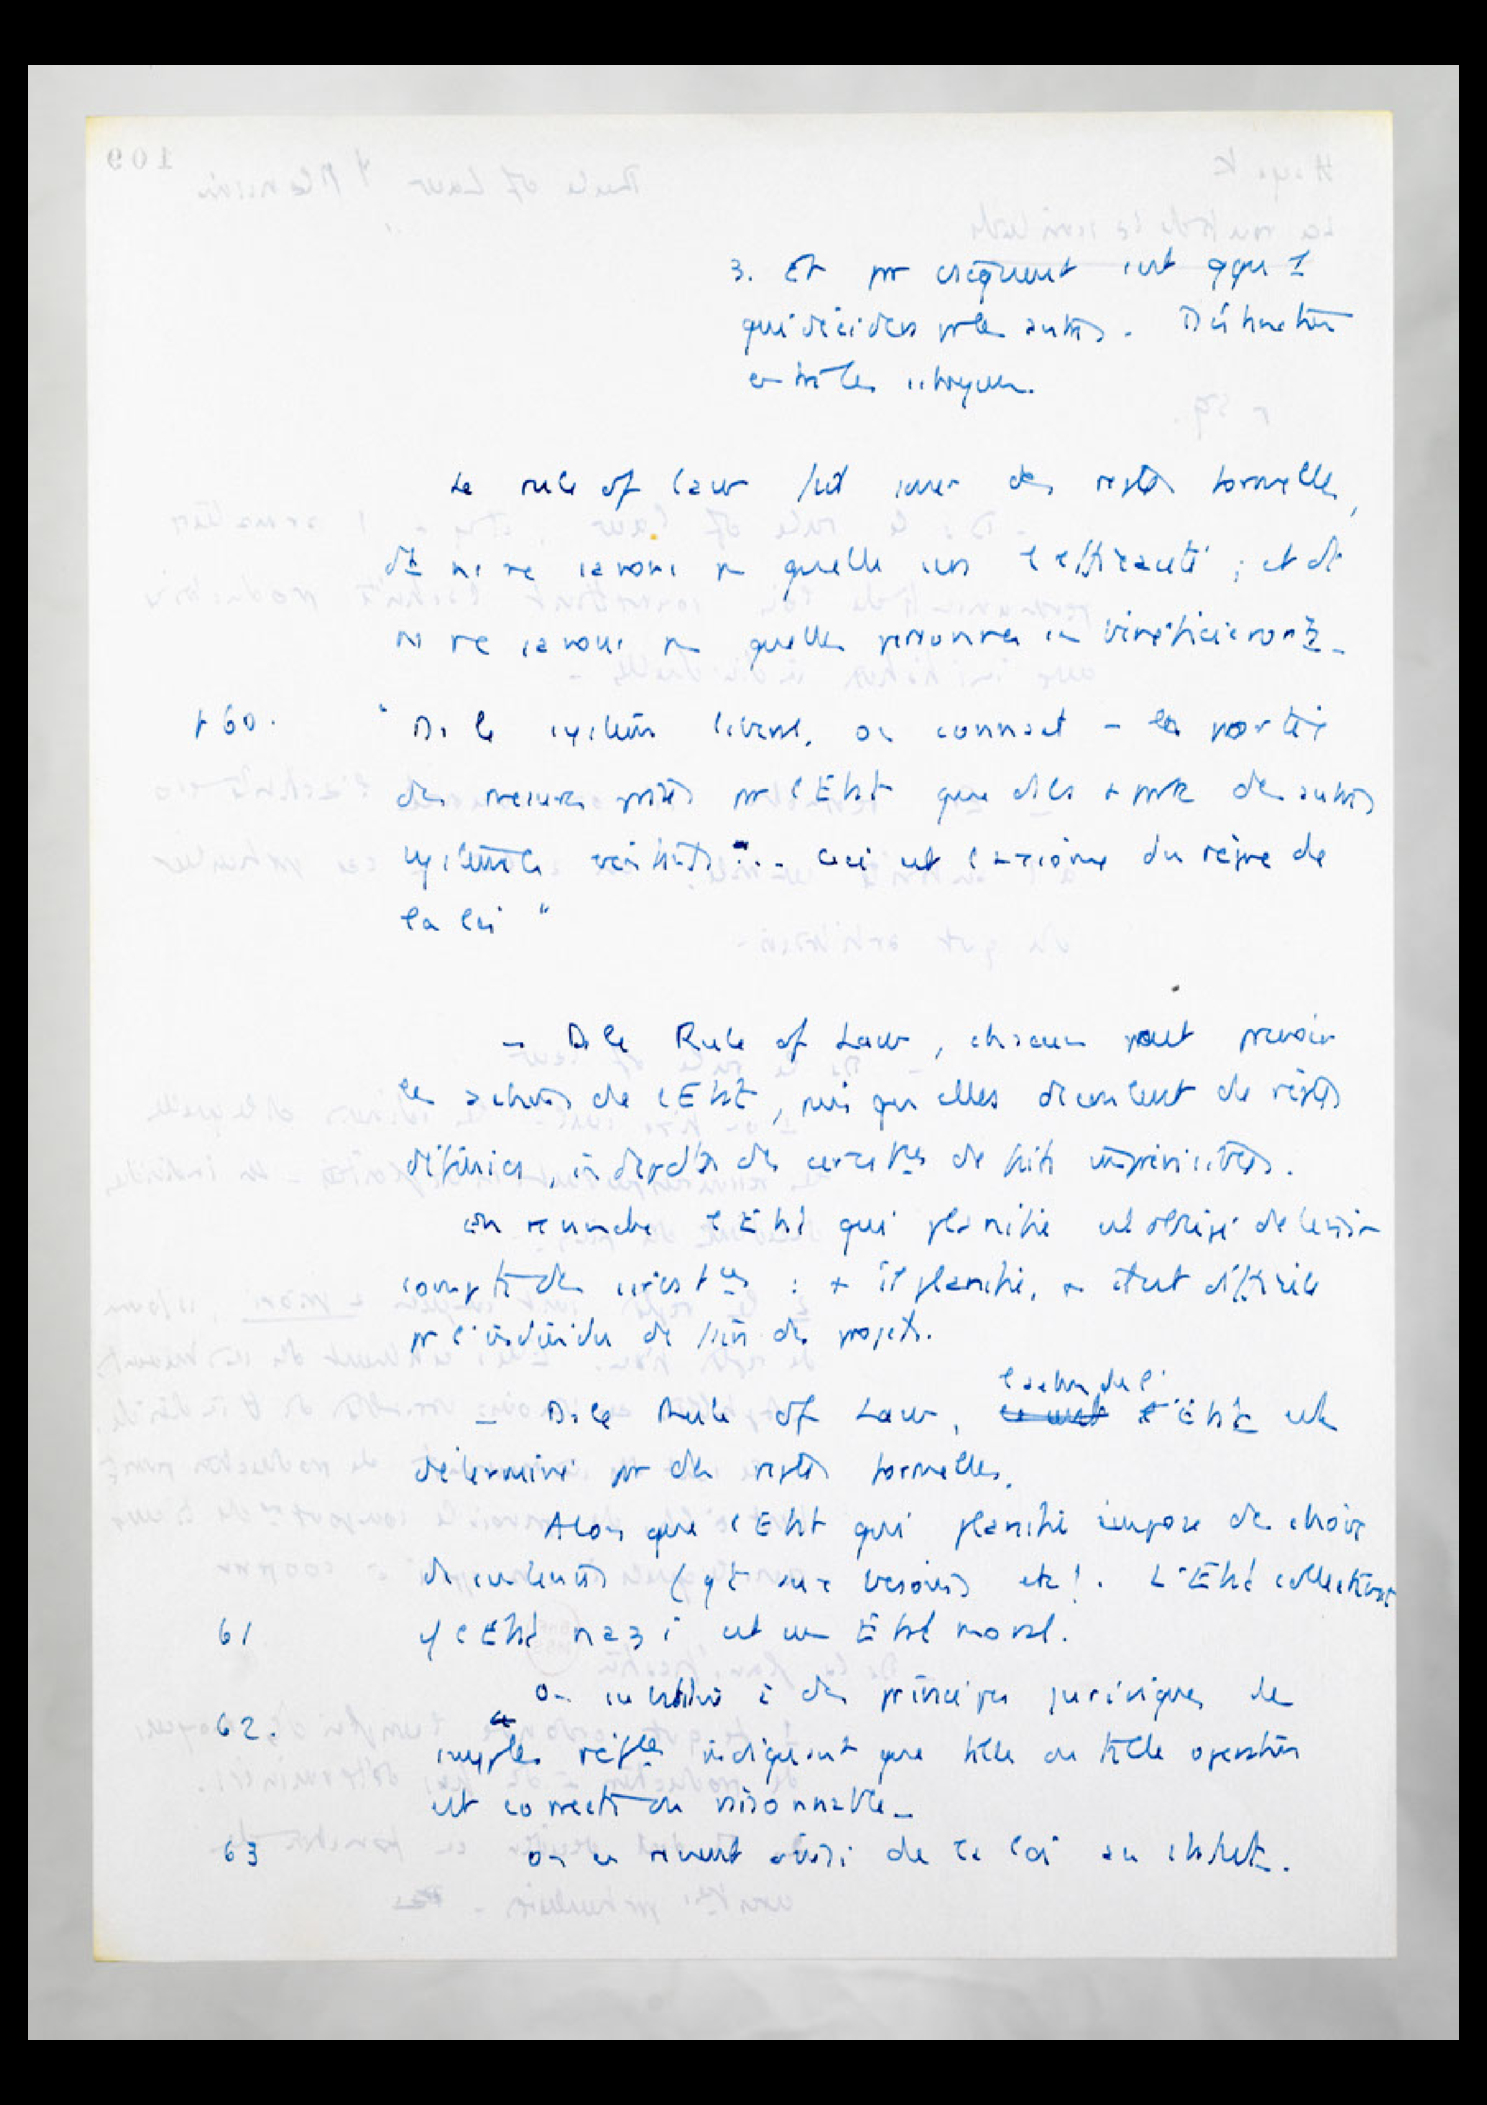 3. Et pr cséquent c'est qqu 1
qui décidera pr les autres. Distinction
entre les citoyens.
Le rule of law fait jouer des règles formelles,
dt ns ne savons pas quelle sera l'efficacité ; et dt
ns ne savons pas quelles personnes en bénéficieront.
p 60.
"Ds le système libéral, on connaît - la portée
des mesures prises pr l'Etat que dès
... Ceci est l'axiome du règne de
la loi"
- Ds le Rule of Law, chacun peut prévoir
les actions de l'Etat, puisqu'elles découlent de règles
définies, indepdtes des circstces de faits imprévisibles.
En revanche l'Etat qui planifie est obligé de tenir
compte des circstces : + il planifie, + il est difficile
pr l'individu de faire des projets.
- Ds le Rule of Law, l'action de l' Etat est
déterminé pr des règles formelles.
Alors que l'Etat qui planifie impose des choix
de contenus (qt aux besoins etc). L'Etat collectiviste
61
et l'Etat nazi est un Etat moral.
On substitue à des principes juridiques de
62.
simples règles indiquant que telle ou telle opération
est correcte ou raisonnable.
63
On en revient ainsi de la loi au statut.